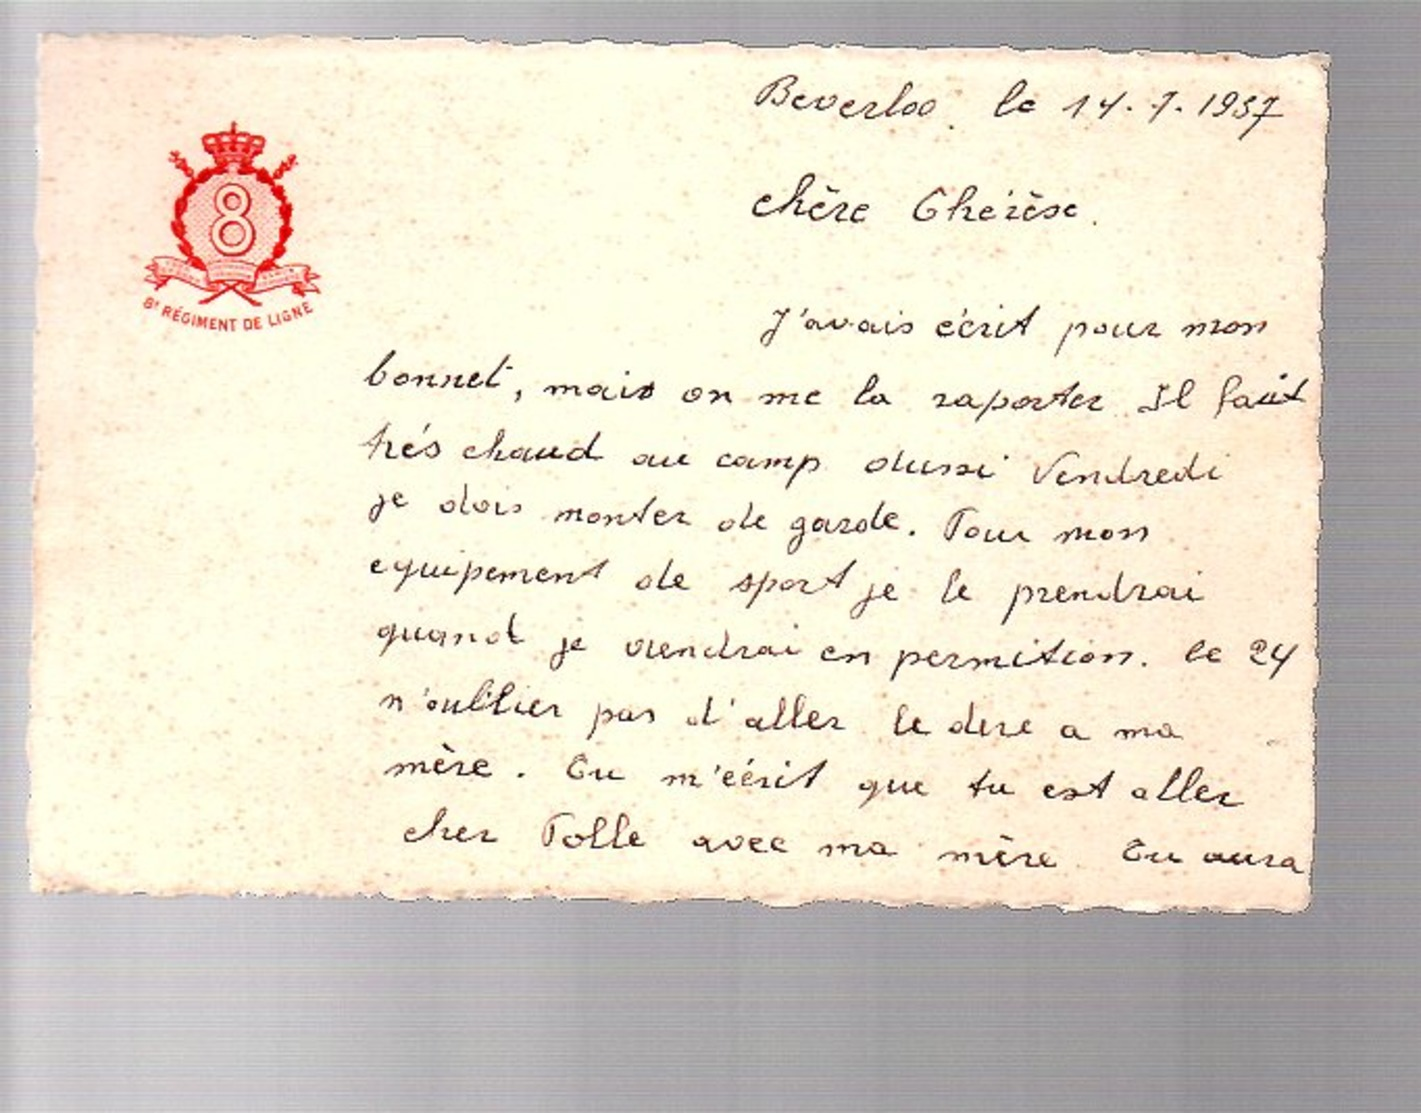 Beverloo. le 14.7.1937
chère Thérèse.
8
8e RÉGIMENT DE LIGNE
J'avais écrit pour mon
bonnet, mais on me la raporter Il fait
trés chaud au camp aussi Vendredi
je dois monter de garde. Pour mon
equipement de sport je le prendrai
quand je viendrai en permition. le 24
n'oublier pas d'aller le dire a ma
mère. Tu m'écrit que tu est aller
cher Polle avec ma mère Tu aura